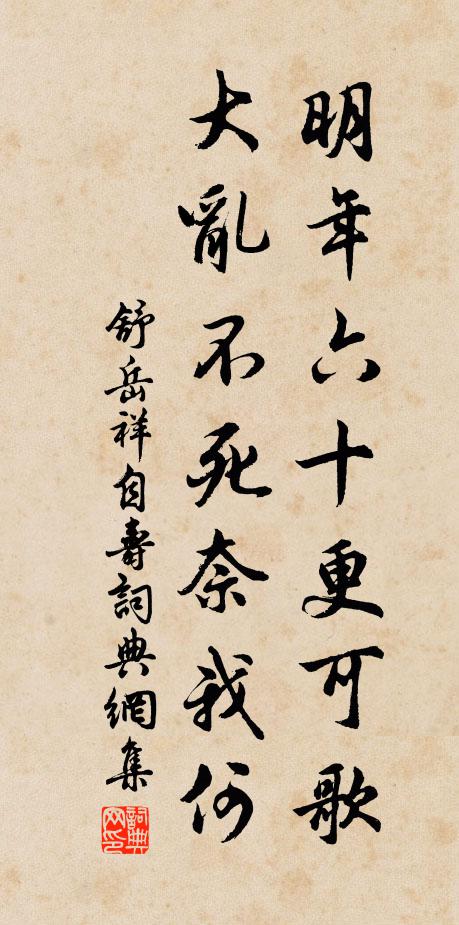 明年六十更可歌
大亂不死奈我何
舒岳祥自壽詞典網集
詞典網印